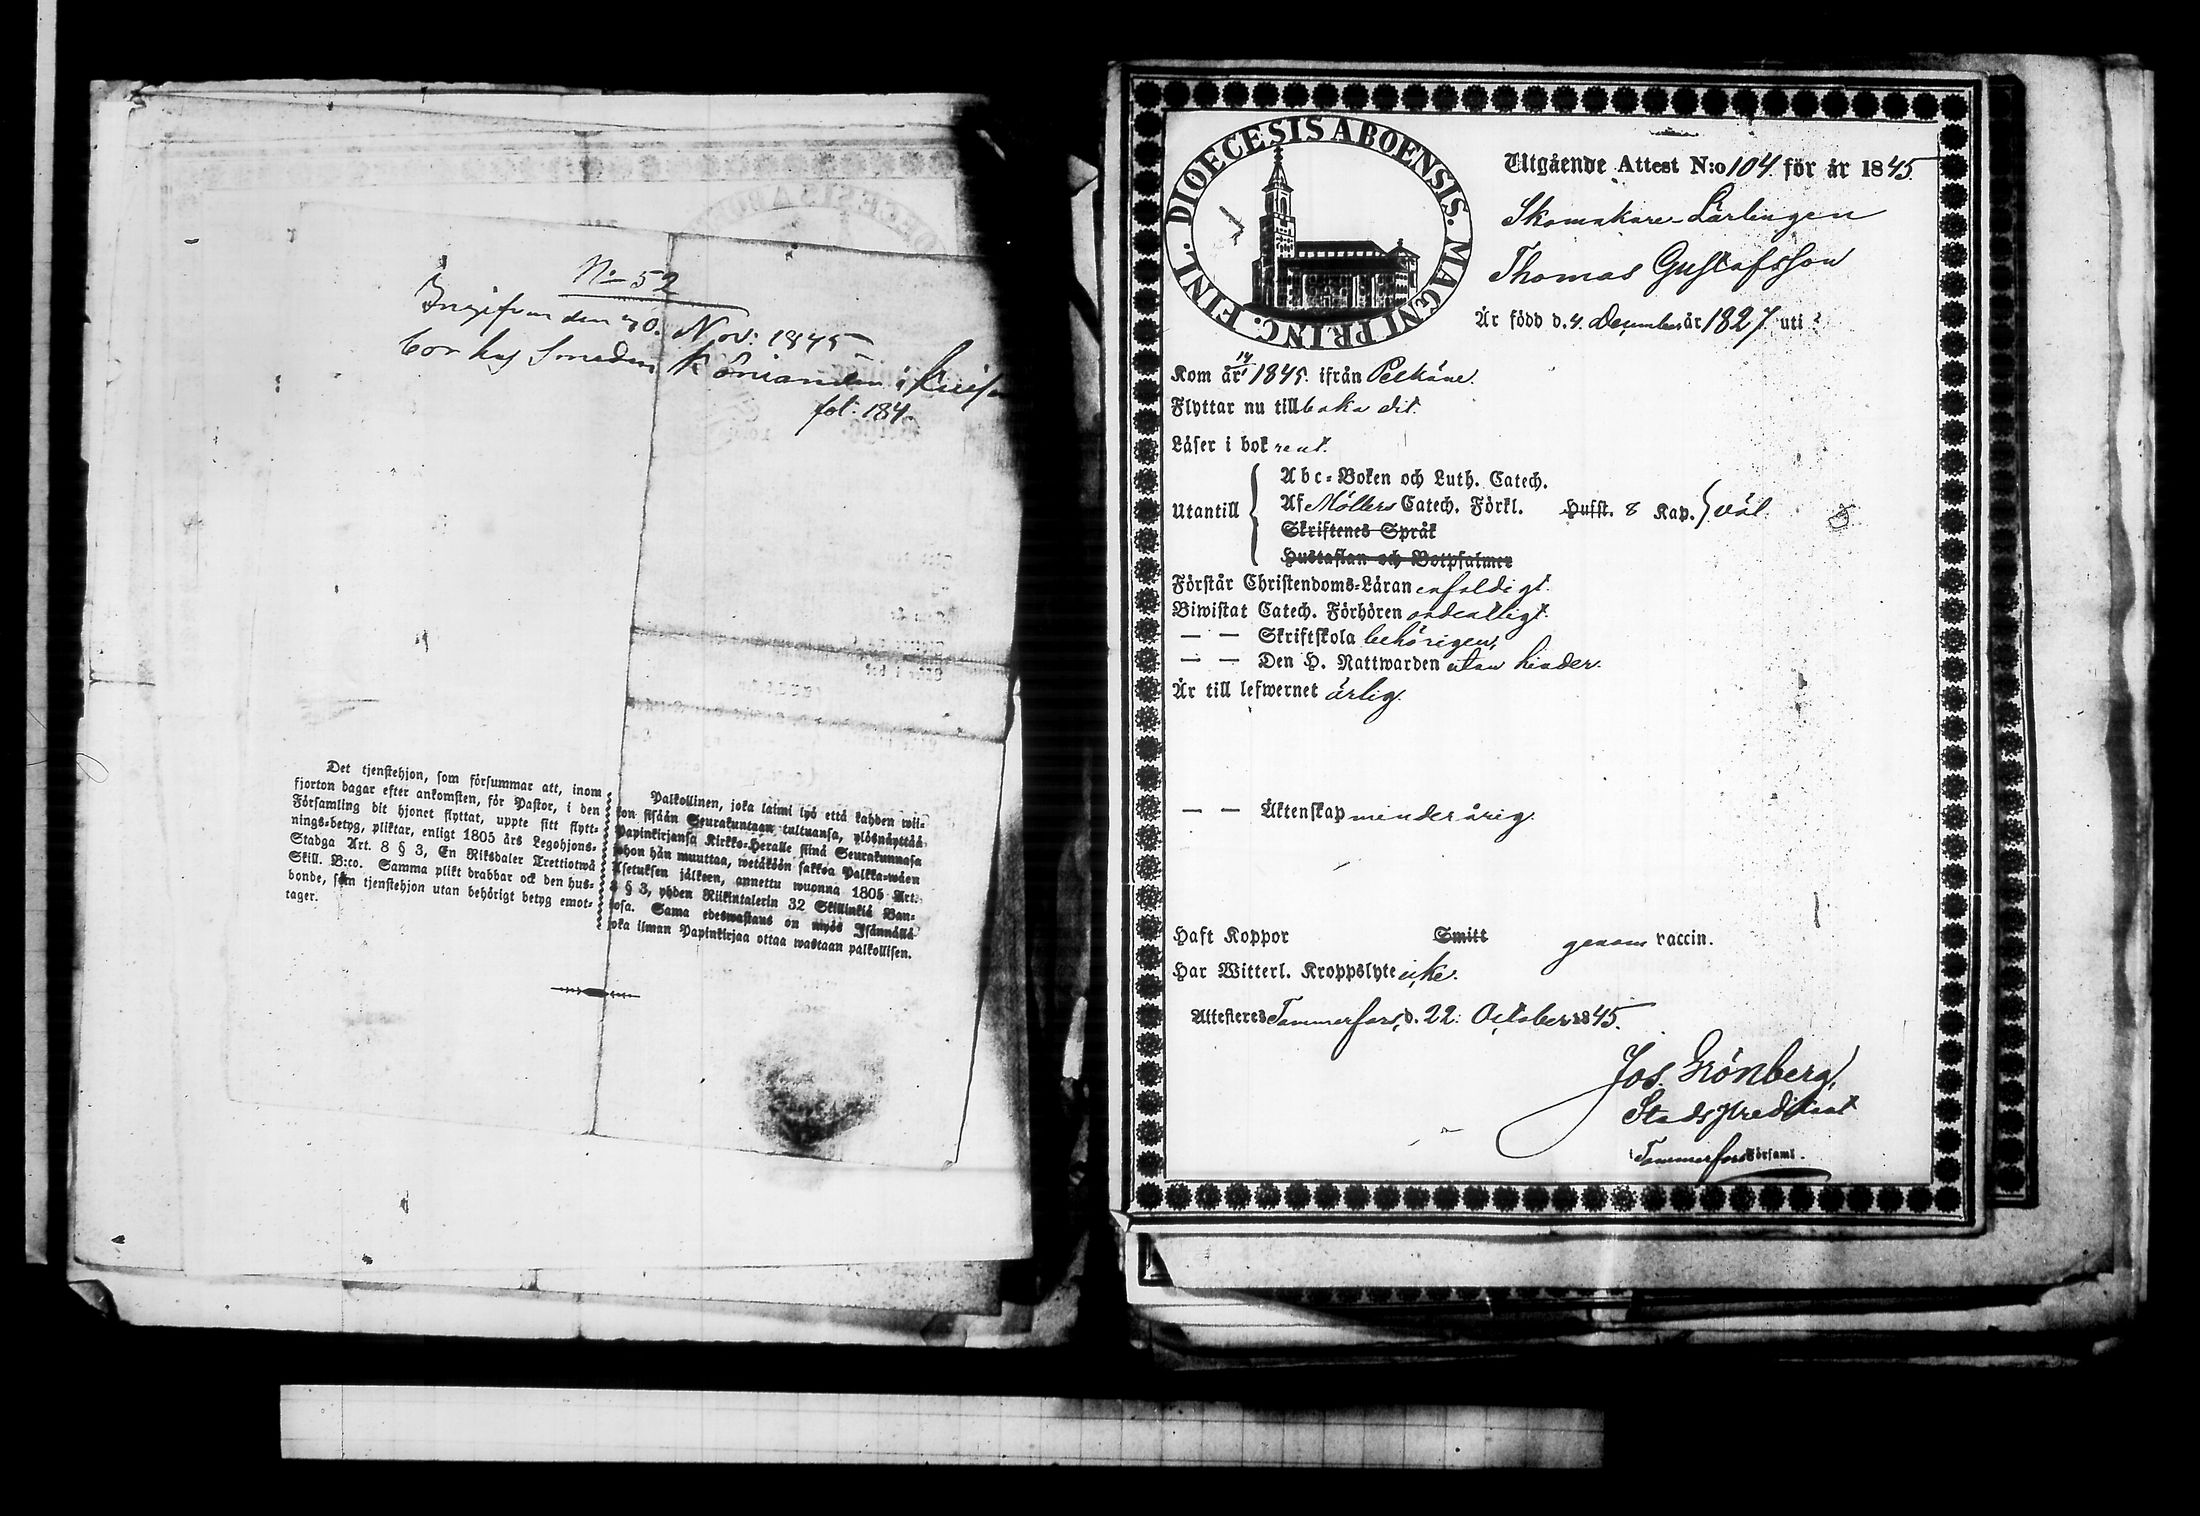 No 52
Ingifven den 30. Nov: 1845
bor hos Smeden
fol: 184
Det tjenstehjon, som försummar att, inom
fjorton dagar efter ankomsten, för Pastor, i den
Församling dit hjonet flyttat, uppte sitt flytt-
nings-betyg, pliktar, enligt 1805 års Legohjons-
Stadga Art. 8 § 3, En Riksdaler Trettiotwå
Skill. B:co. Samma plikt drabbar ock den hus-
bonde, som tjenstehjon utan behörigt betyg emot-
tager.
Palkollinen, joka laimi lyö että kahden wii-
kon sisään Seurakuntaan tultuansa, ylösnäyttää
Papinkirjansa Kirkko-Herralle siinä Seurakunnasa
johon hän muuttaa, wetäköön sakkoa Palkka-wäen
Asetuksen jälkeen, annettu wuonna 1805 Art.
8 § 3, yhden Riikintalerin 32 Skillinkiä Ban-
kosa. Sama edeswastaus on myös Isännällä
joka ilman Papinkirjaa ottaa wastaan palkollisen.
DIOECESIS ABOENSIS. MAGNI PRINC. FINL.
Utgående Attest N:o 104 för år 1845
Skomakare-Lärlingen
Thomas Gustafsson
Är född d. 4. December år 1827. uti
Kom år 14/1 1845. ifrån Pelkäne.
Flyttar nu tillbaka dit.
Läser i bok rent.
Utantill
Abc-Boken och Luth. Catech.
Af Möllers Catech. Förkl. Husst. 8 Kap. väl
Skriftenes Språk
Hustaflan och Botpsalmer
Förstår Christendoms-Läran enfaldigt.
Biwistat Catech. Förhören ordentligt.
— — Skriftskola behörigen,
— — Den H. Nattwarden utan hinder.
Är till lefwernet ärlig.
— — Äktenskap minderårig.
Haft Koppor Smitt genom vaccin.
Har Witterl. Kroppslyte icke.
Attesteres Tammerfors, d. 22. October 1845.
Jos. Grönberg,
Stadspredikant
i Tammerfors Församl.